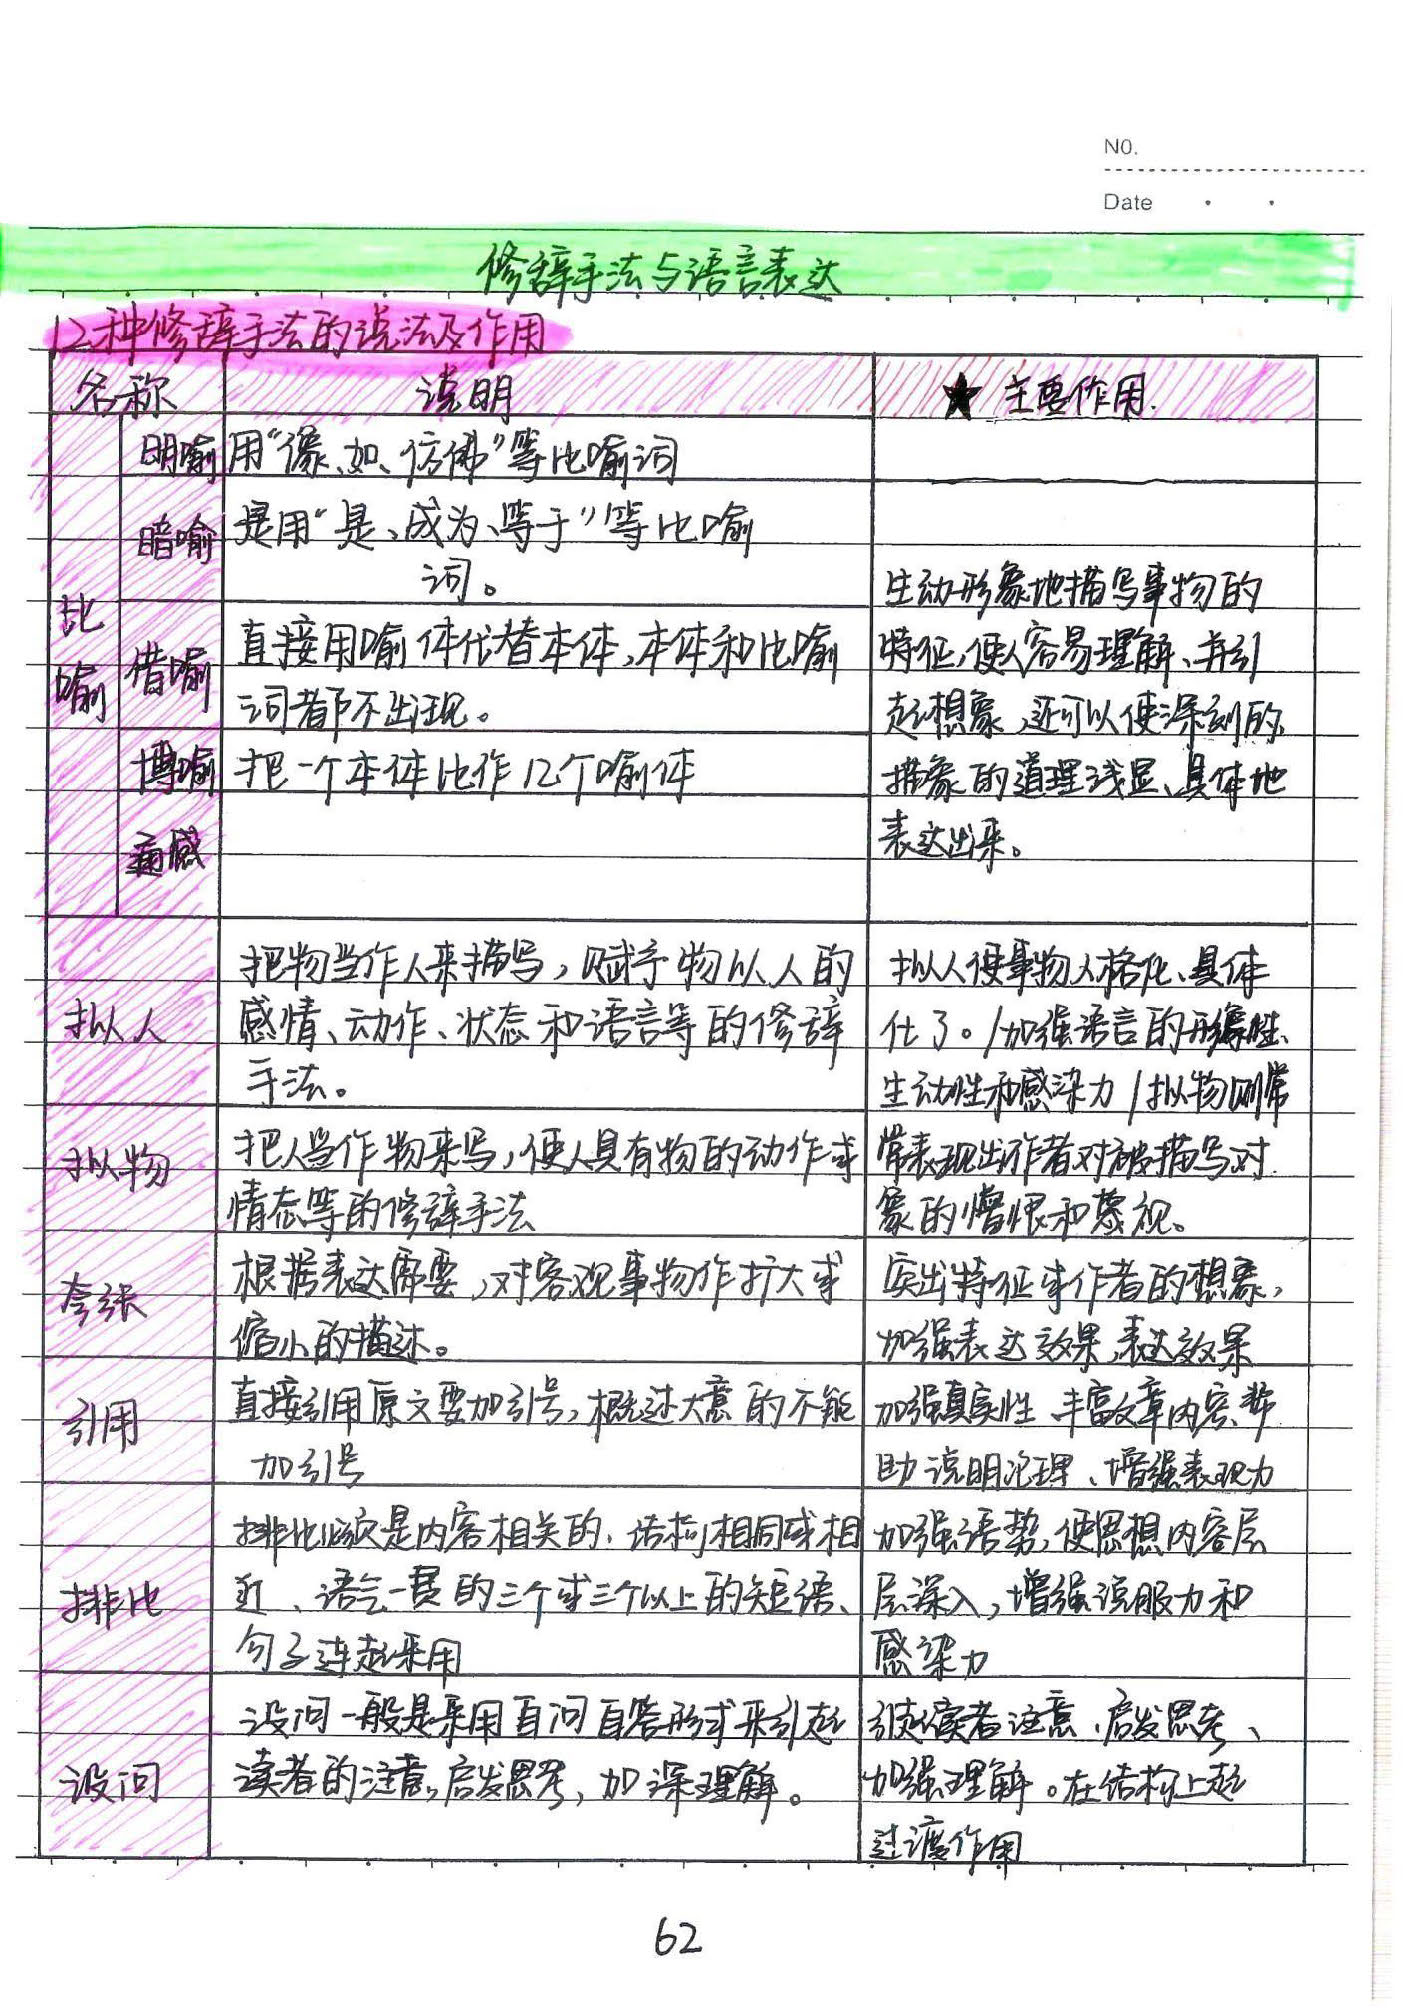 NO.
Date
修辞手法与语言表达
12种修辞手法的说法及作用
名称 说明 ★ 主要作用.
比喻
明喻 用“像、如、仿佛”等比喻词
暗喻 是用“是、成为、等于”等比喻
词。
借喻 直接用喻体代替本体,本体和比喻
词都不出现。
博喻 把一个本体比作几个喻体
通感
生动形象地描写事物的
特征,使人容易理解、并引
起想象,还可以使深刻的、
抽象的道理浅显、具体地
表达出来。
拟人
把物当作人来描写,赋予物以人的
感情、动作、状态和语言等的修辞
手法。
拟物
把人当作物来写,使人具有物的动作或
情态等的修辞手法
拟人使事物人格化、具体
化了。/加强语言的形象性、
生动性和感染力/拟物则常
常表现出作者对被描写对
象的憎恨和蔑视。
夸张
根据表达需要,对客观事物作扩大或
缩小的描述。
突出特征或作者的想象,
加强表达效果,表达效果
引用
直接引用原文要加引号,概述大意的不能
加引号
加强真实性 丰富文章内容.帮
助说明论理、增强表现力
排比
排比必须是内容相关的、结构相同或相
近、语气一贯的三个或三个以上的短语、
句子连起来用
加强语势,使思想内容层
层深入,增强说服力和
感染力
设问
设问一般是采用自问自答形式来引起
读者的注意,启发思考,加深理解。
引起读者注意、启发思考、
加强理解。在结构上起
过渡作用
62